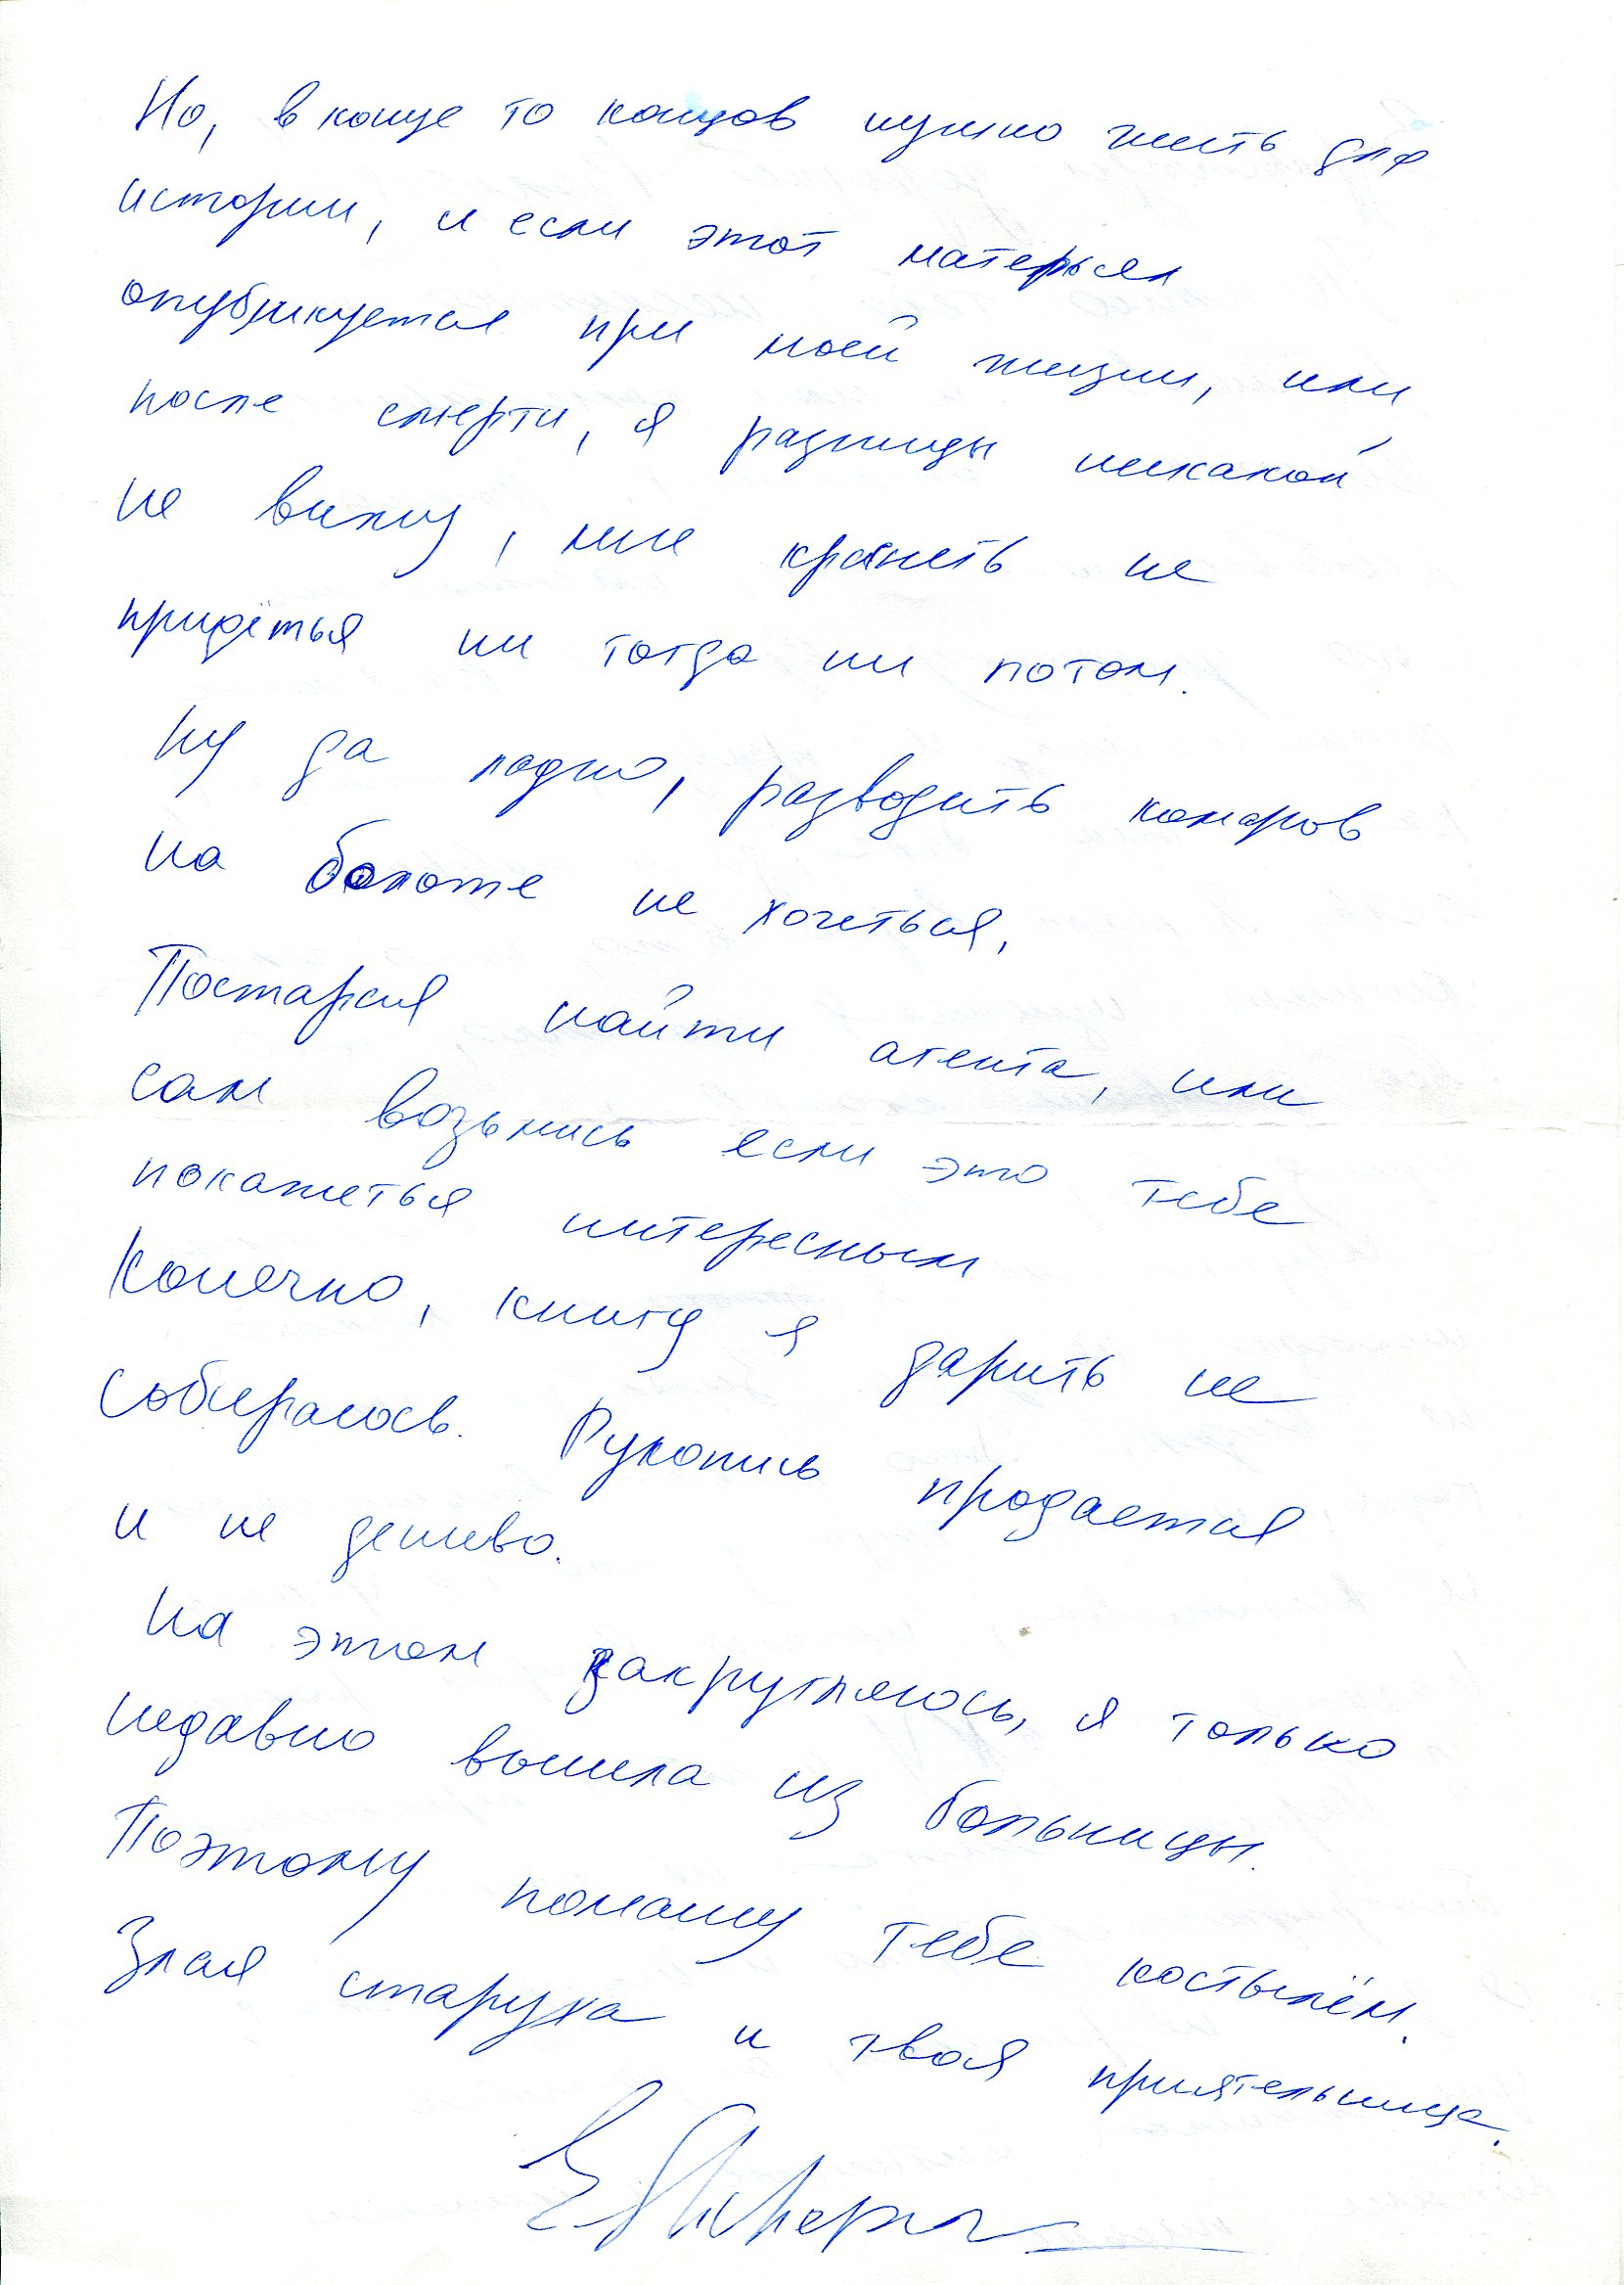 Но, в конце то концов нужно жить для
истории, и если этот матерьял
опубликуется при моей жизни, или
после смерти, я разницы никакой
не вижу, мне краснеть не
придёться ни тогда ни потом.
Ну да ладно, разводить комаров
на болоте не хочеться.
Постарайся найти агента, или
сам возьмись если это тебе
покажеться интересным
Конечно, книгу я дарить не
собираюсь. Рукопись продается
и не дешево.
На этом закругляюсь, я только
недавно вышла из больницы.
Поэтому помашу тебе костылём.
Злая старуха и твоя приятельница.